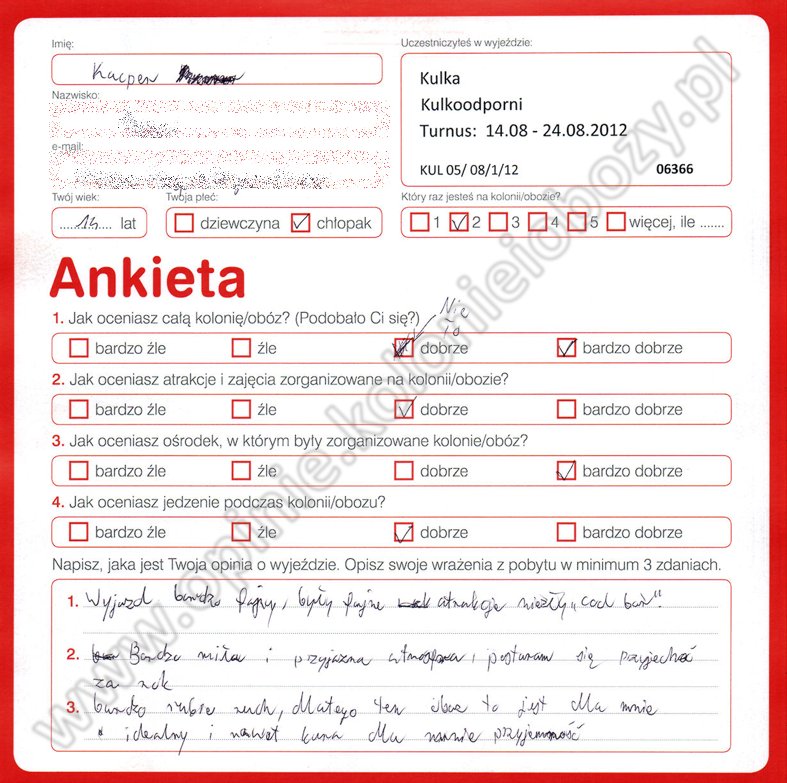 Imię:
Kacper
Uczestniczyłeś w wyjeździe:
Kulka
Kulkoodporni
Turnus: 14.08 - 24.08.2012
KUL 05/ 08/1/12 06366
Nazwisko:
e-mail:
Twój wiek:
14 lat
Twoja płeć:
dziewczyna chłopak
Który raz jesteś na kolonii/obozie?
1 2 3 4 5 więcej, ile .......
Ankieta
1. Jak oceniasz całą kolonię/obóz? (Podobało Ci się?)
Nie
to
bardzo źle źle dobrze bardzo dobrze
2. Jak oceniasz atrakcje i zajęcia zorganizowane na kolonii/obozie?
bardzo źle źle dobrze bardzo dobrze
3. Jak oceniasz ośrodek, w którym były zorganizowane kolonie/obóz?
bardzo źle źle dobrze bardzo dobrze
4. Jak oceniasz jedzenie podczas kolonii/obozu?
bardzo źle źle dobrze bardzo dobrze
Napisz, jaka jest Twoja opinia o wyjeździe. Opisz swoje wrażenia z pobytu w minimum 3 zdaniach.
1. Wyjazd bardzo fajny, były fajne atrakcje niezły
2. Bardzo miła i przyjazna atmosfera, postaram się przyjechać
za rok
3. bardzo lubię ruch, dlatego ten obóz to jest dla mnie
idealny i nawet dla mnie przyjemność
www.opinie.kolonieiobozy.pl